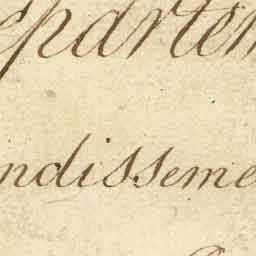 epartem
ndisseme